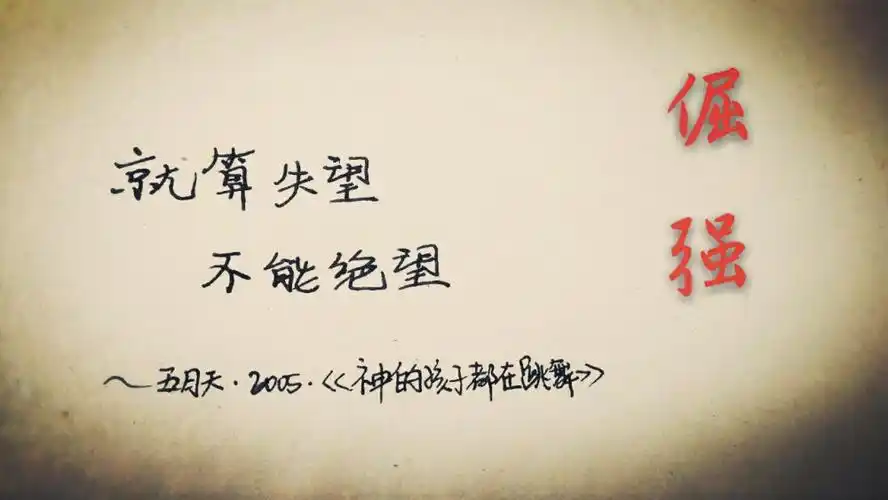 倔
强
就算失望
不能绝望
～五月天·2005·《神的孩子都在跳舞》